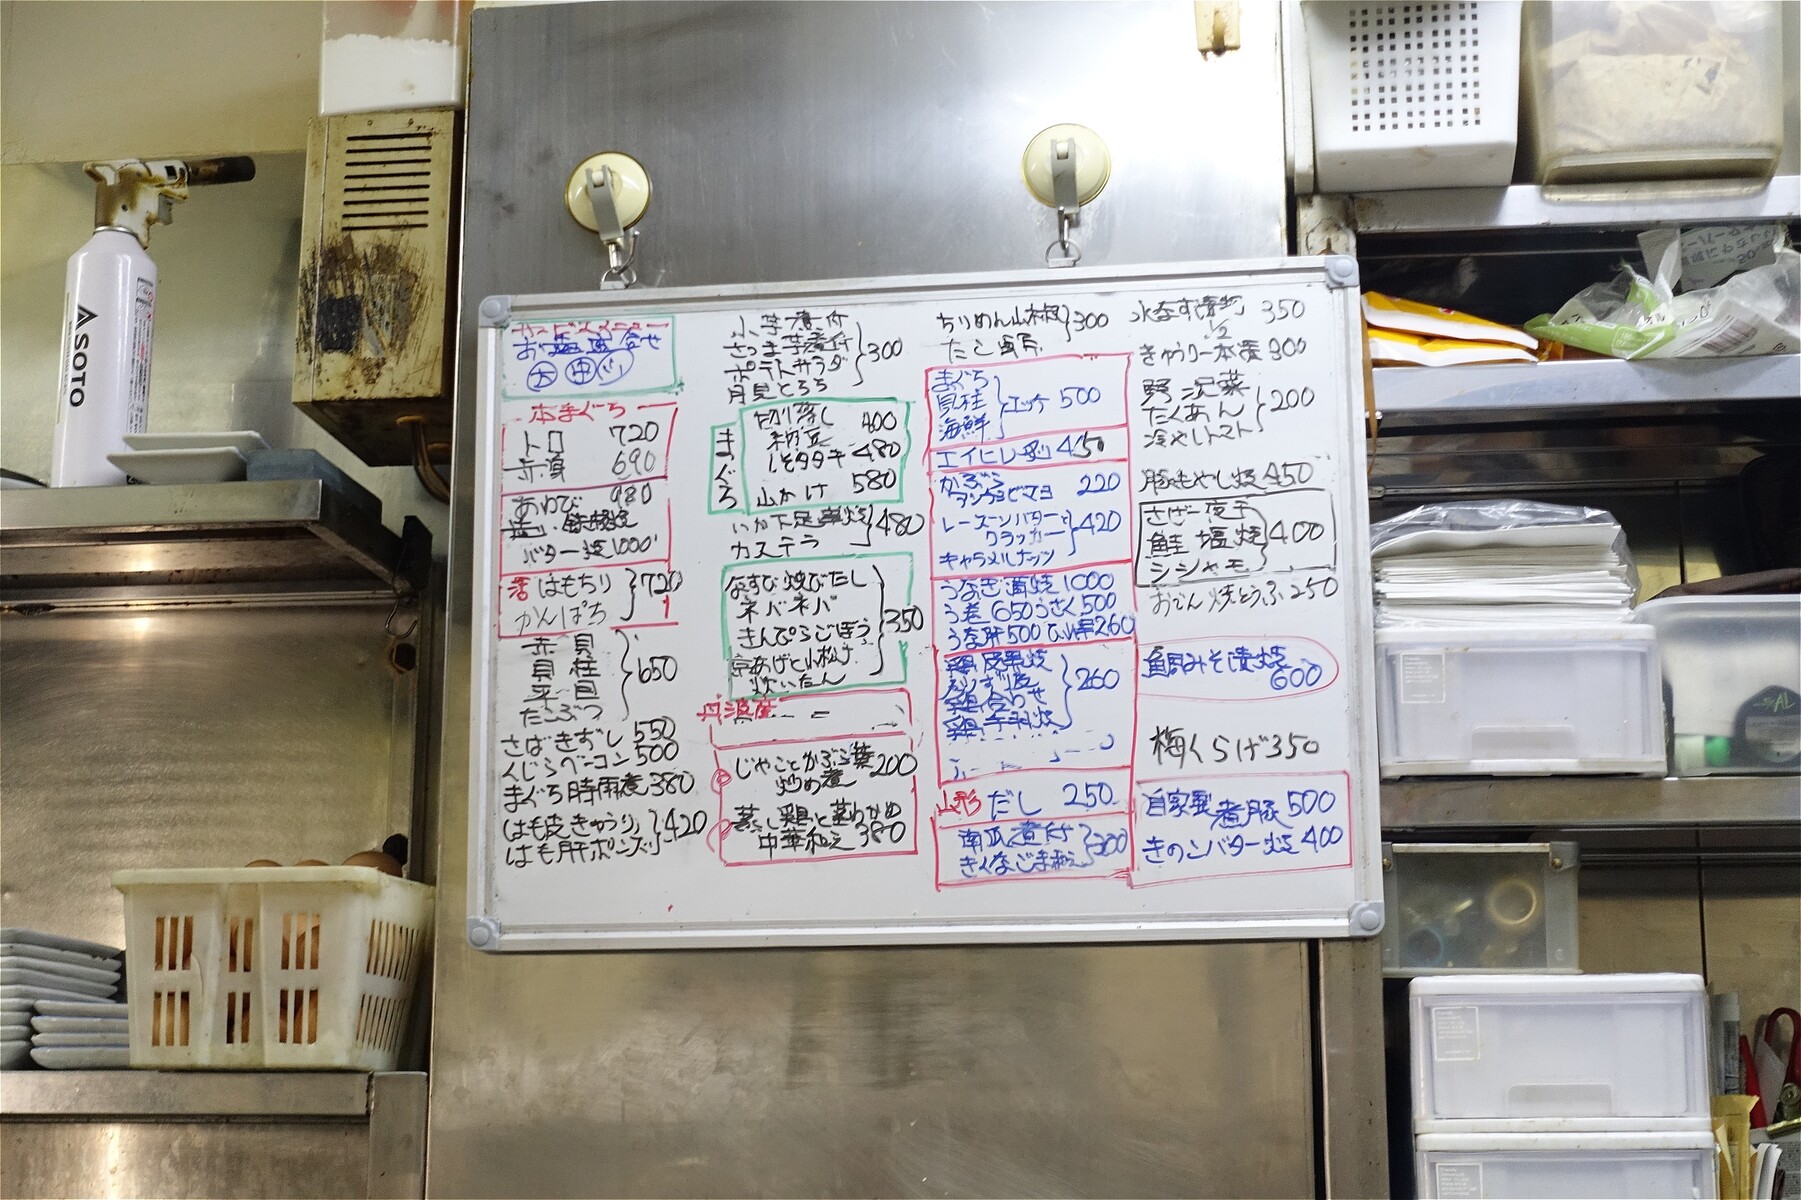 SOTO
お造り盛合せ
大 中 小
本まぐろ
トロ 720
赤身 690
あわび 980
造り・鉄板焼
バター焼 1000
活 はもちり
かんぱち
720
赤貝
貝柱
平貝
たこぶつ
650
さばきずし 550
くじらベーコン 500
まぐろ時雨煮 380
はも皮きゅうり
はも肝ポンズ
420
小芋煮付
さつま芋煮付
ポテトサラダ
月見とろろ
300
まぐろ
切り落し 400
納豆
しそタタキ 480
山かけ 580
いか下足
カステラ
480
なすび焼びたし
ネバネバ
きんぴらごぼう
京あげと小松な
炊いたん
350
丹波産
じゃことかぶら葉 200
炒め煮
蒸し鶏と茎わかめ
中華和え 380
ちりめん山椒
たこ
300
まぐろ
貝柱
海鮮
ユッケ 500
エイヒレ炙り 450
かぶら
アンチョビマヨ 220
レーズンバターと
クラッカー
420
キャラメルナッツ
うなぎ蒲焼 1000
う巻 650 うざく 500
うな肝 500 ひれ串 260
鶏皮串焼
鶏ずり
鶏合わせ
鶏手羽焼
260
山形 だし 250
南瓜煮付
きくなごま和え
300
水なす漬物 350
1/2
きゅうり一本漬 300
野沢菜
たくあん
冷やしトマト
200
豚もやし炒 450
さざー夜干
鮭塩焼
シシャモ
400
おでん 焼とうふ 250
鯛みそ漬焼
600
梅くらげ 350
自家製煮豚 500
きのこバター焼 400